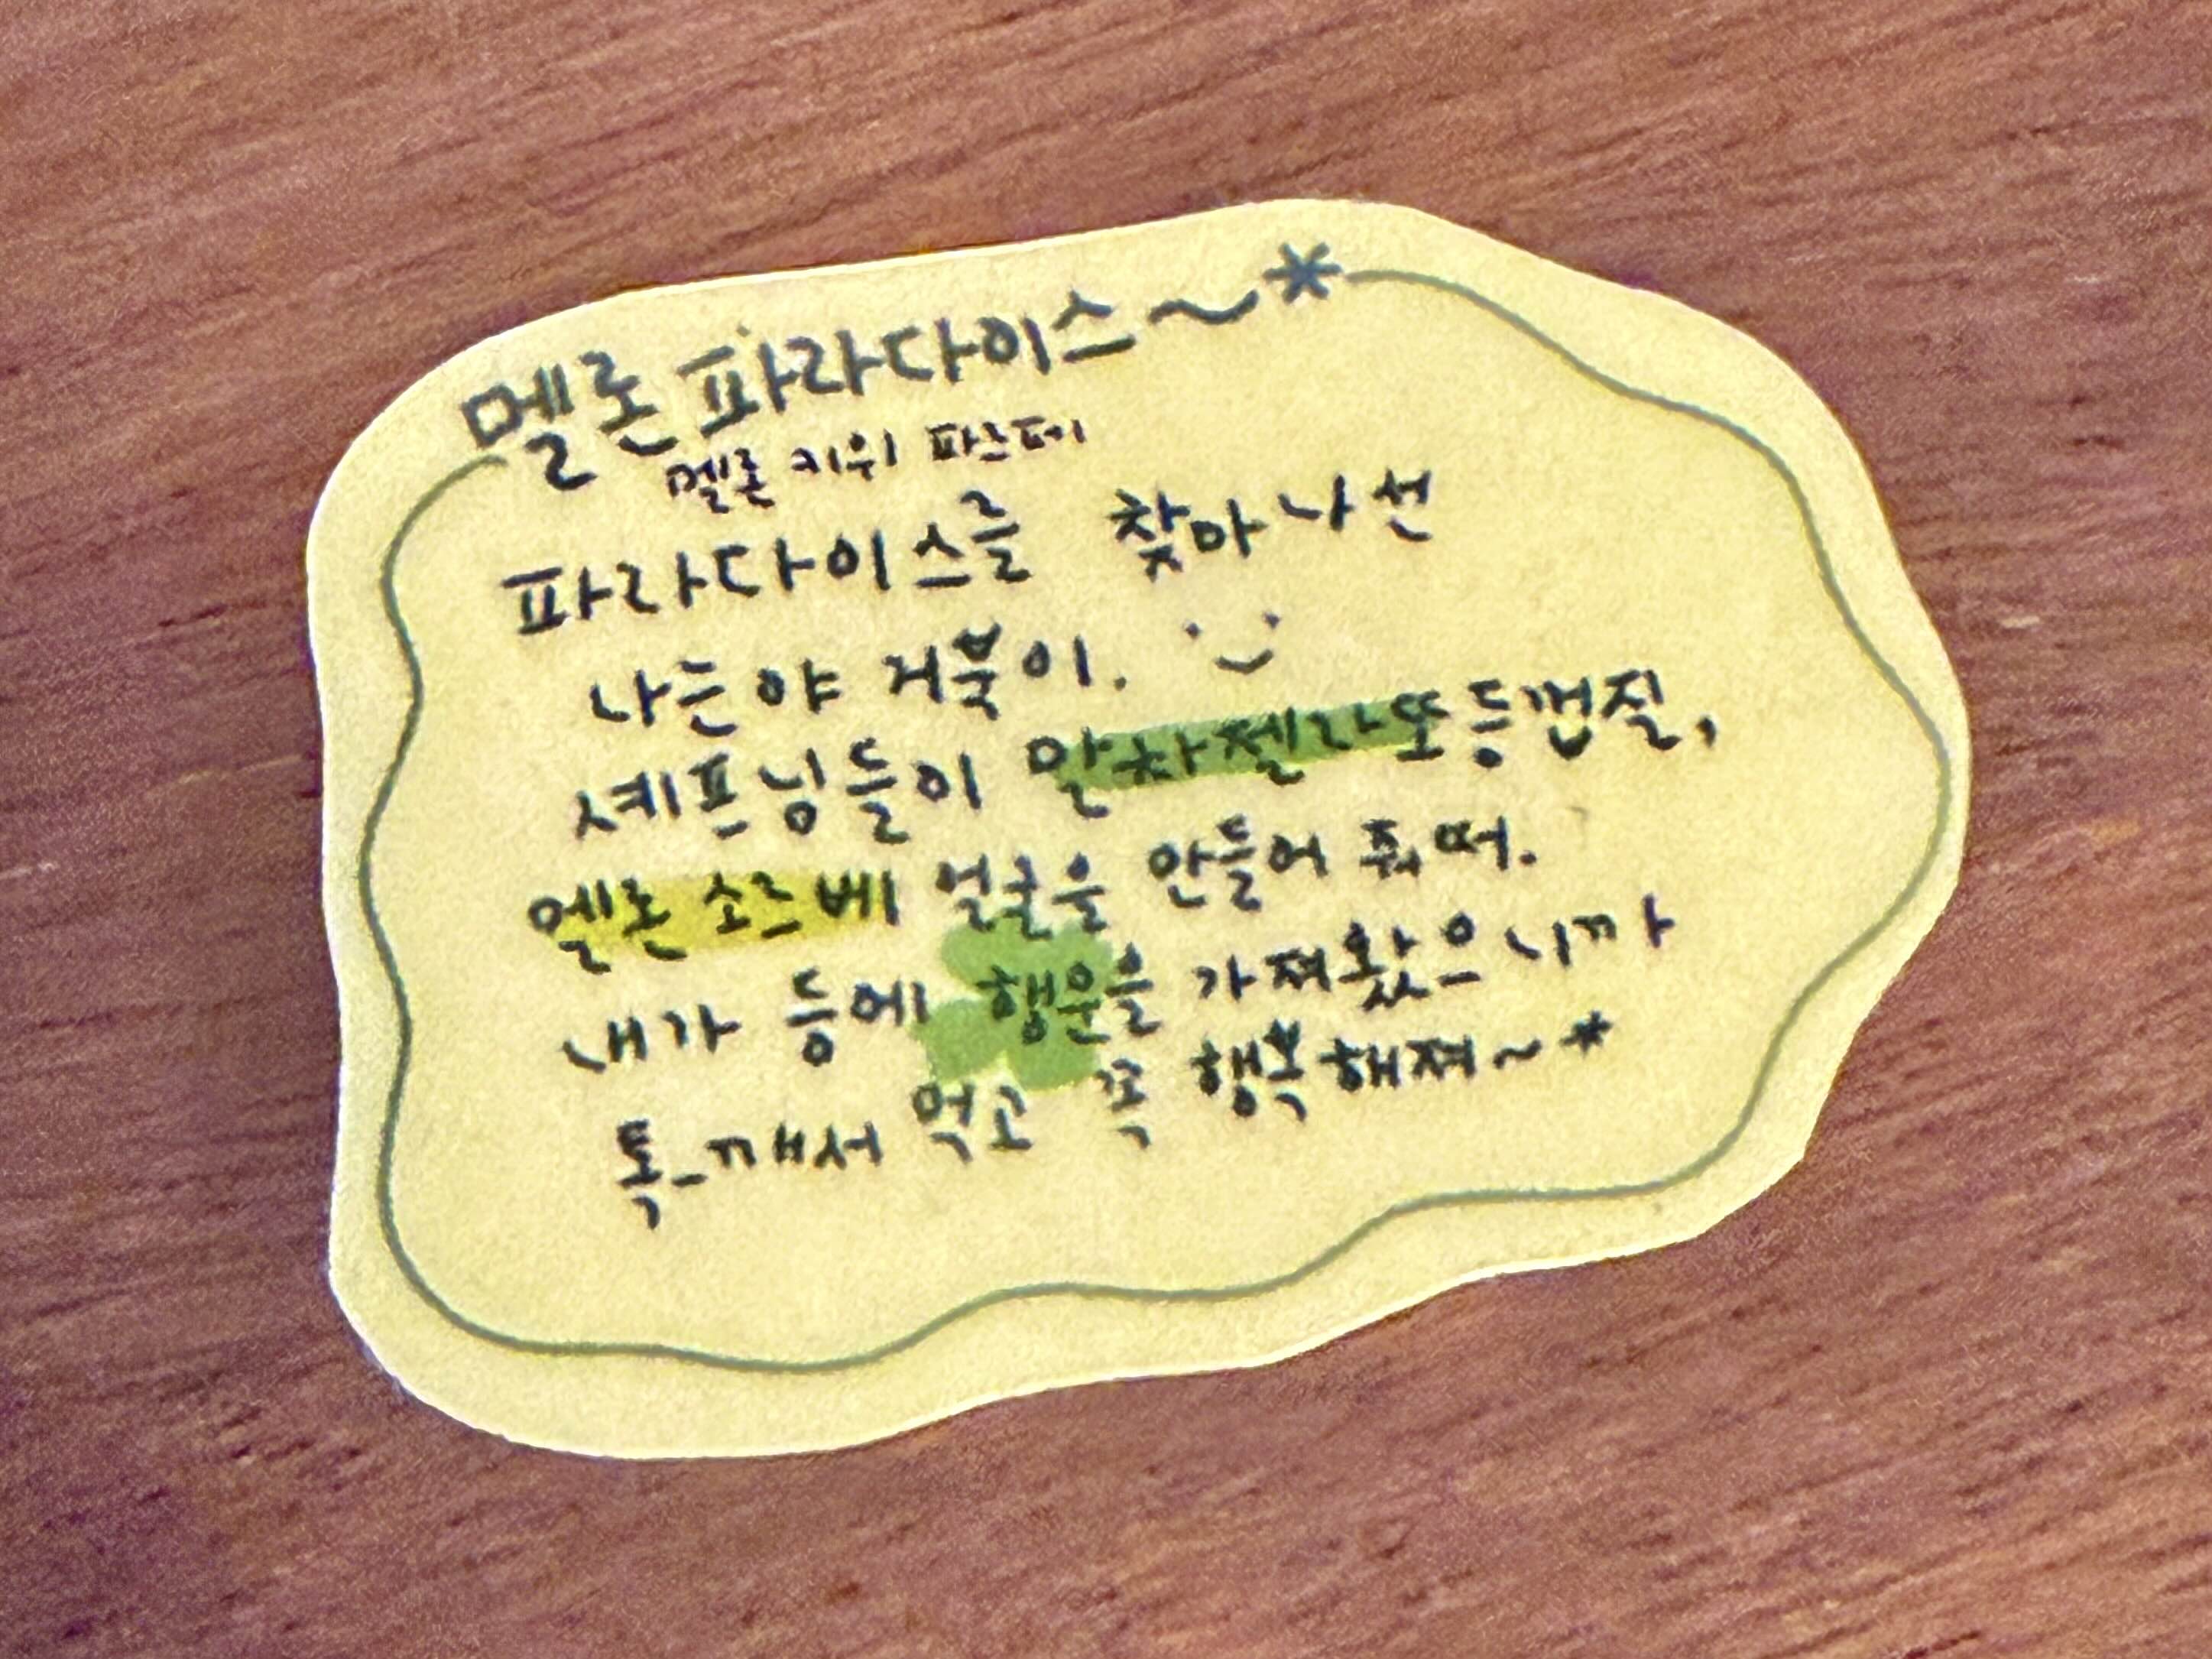 멜론 파라다이스~*
멜론 키위 파르페
파라다이스를 찾아 나선
나는야 거북이. :)
셰프님들이 말차젤라또 등껍질,
멜론 소르베 얼굴을 만들어 줘떠.
내가 등에 행운을 가져왔으니까
톡_깨서 먹고 꼭 행복해져~*